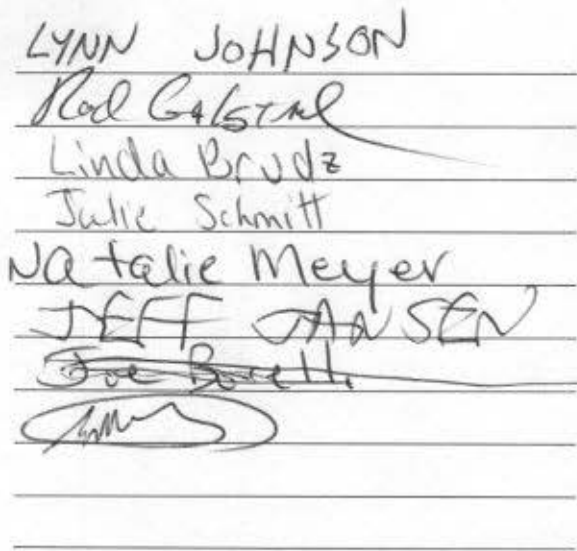 LYNN JOHNSON
Rod
Linda Brudz
Julie Schmitt
Natalie Meyer
JEFF JANSEN
Joe